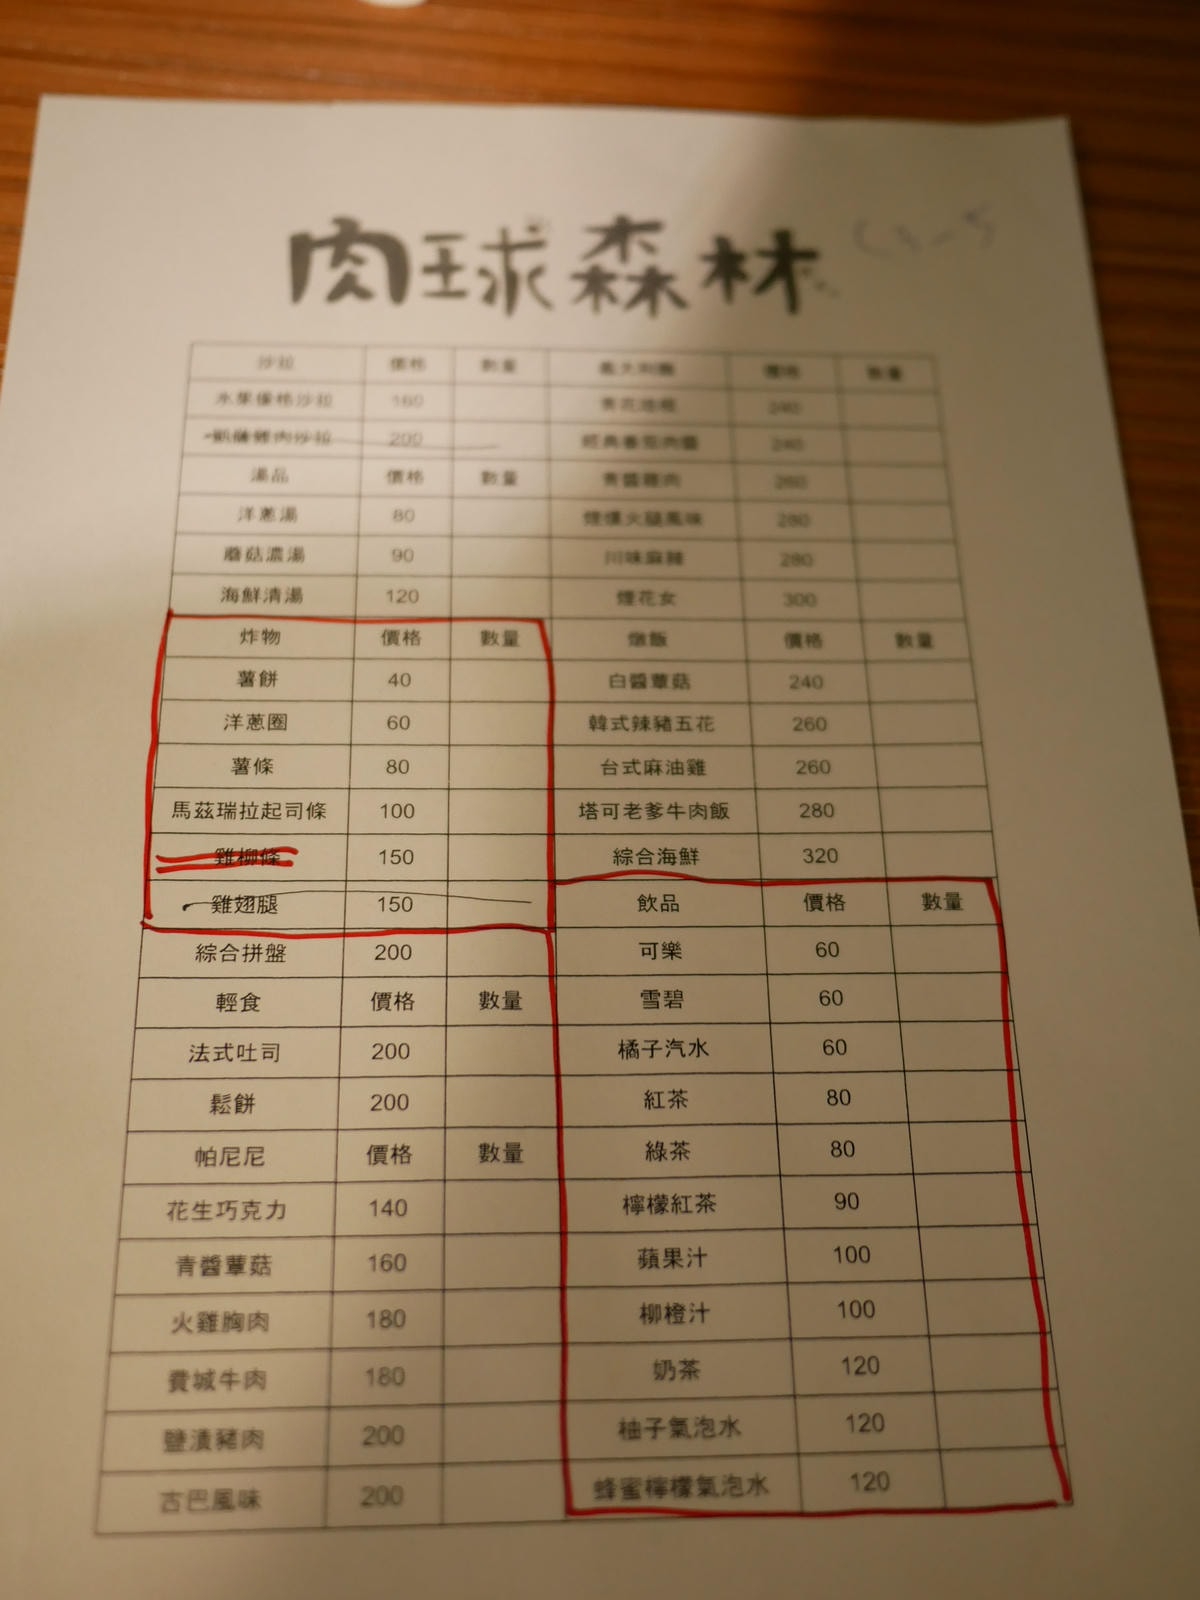 肉球森林
沙拉 價格 數量 義大利麵 價格 數量
水果優格沙拉 160 青花培根 240
凱薩雞肉沙拉 200 經典番茄肉醬 240
湯品 價格 數量 青醬雞肉 260
洋蔥湯 80 煙燻火腿風味 280
蘑菇濃湯 90 川味麻辣 280
海鮮清湯 120 煙花女 300
炸物 價格 數量 燉飯 價格 數量
薯餅 40 白醬蕈菇 240
洋蔥圈 60 韓式辣豬五花 260
薯條 80 台式麻油雞 260
馬茲瑞拉起司條 100 塔可老爹牛肉飯 280
雞柳條 150 綜合海鮮 320
雞翅腿 150 飲品 價格 數量
綜合拼盤 200 可樂 60
輕食 價格 數量 雪碧 60
法式吐司 200 橘子汽水 60
鬆餅 200 紅茶 80
帕尼尼 價格 數量 綠茶 80
花生巧克力 140 檸檬紅茶 90
青醬蕈菇 160 蘋果汁 100
火雞胸肉 180 柳橙汁 100
費城牛肉 180 奶茶 120
鹽漬豬肉 200 柚子氣泡水 120
古巴風味 200 蜂蜜檸檬氣泡水 120